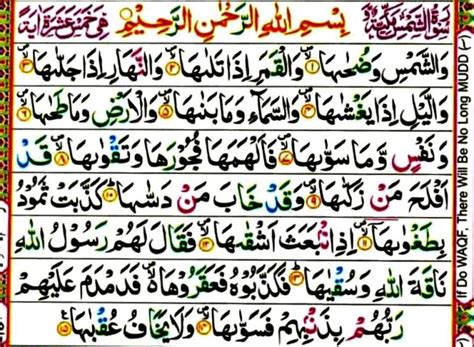 سورة الشمس مكية بسم الله الرحمن الرحيم هي خمس عشرة اية
والشمس وضحىها ۱ والقمر اذا تلىها ۲ والنهار اذا جلىها ۳
واليل اذا يغشىها ۴ والسماء وما بنىها ۵ والارض وما طحىها ۶
ونفس وما سوىها ۷ فالهمها فجورها وتقوىها ۸ قد
افلح من زكىها ۹ وقد خاب من دسىها ۱۰ كذبت ثمود
بطغوىها ۱۱ اذ انبعث اشقىها ۱۲ فقال لهم رسول الله
ناقة الله وسقيها ۱۳ فكذبوه فعقروها فدمدم عليهم
ربهم بذنبهم فسوىها ۱۴ ولا يخاف عقبها ۱۵
If Do WAQF, There Will Be No Long MUDD (~)